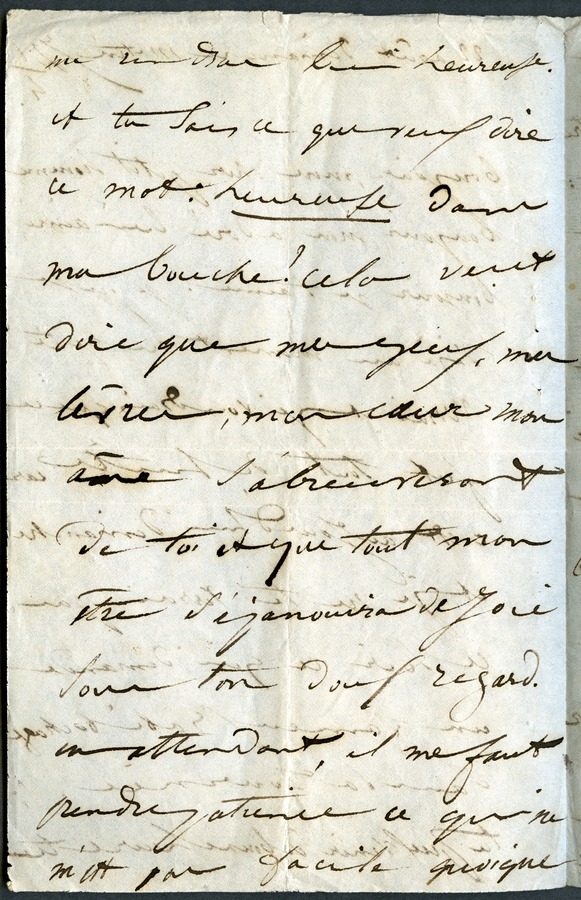 me rendre bien heureuse.
et tu sais ce que veux dire
ce mot: heureuse dans
ma bouche! cela veut
dire que mes yeux, mes
lèvres, mon cœur mon
âme s'abreuveront
de toi et que tout mon
être s'épanouira de joie
sous ton doux regard.
en attendant, il me faut
prendre patience ce qui ne
m'est pas facile quoique